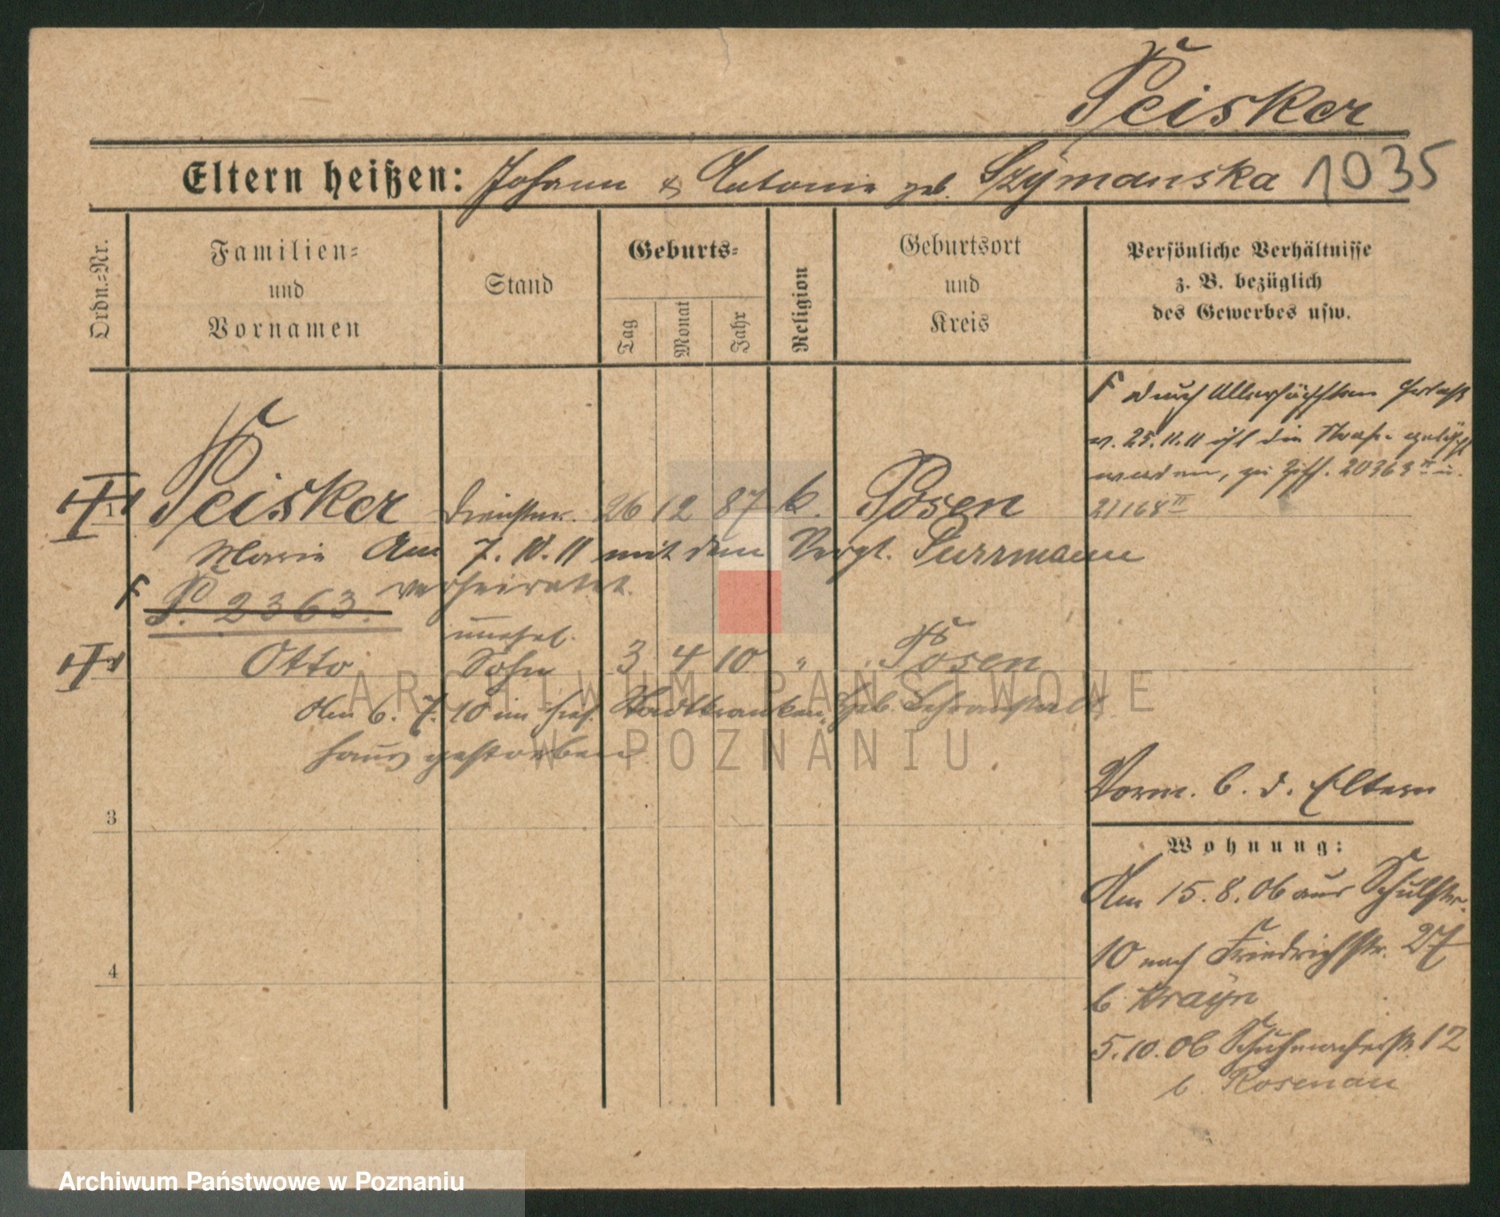 Peisker
Eltern heißen: Johann & Antonie geb. Szymanska 1035
Ordn.-Nr.
Familien-
und
Vornamen
Stand
Geburts-
Tag
Monat
Jahr
Religion
Geburtsort
und
Kreis
Persönliche Verhältnisse
z. B. bezüglich
des Gewerbes usw.
F durch Allerhöchsten Erlaß
v. 25.11.11 ist die Strafe gelöscht
worden, zu Ziff. 20363 II u.
21168 II
1 Peisker Dienstm. 26 12 87 k. Posen
Marie Am 7. 11 mit dem Bergl. Purrmann
verheiratet.
F P. 2363.
unehel.
Otto Sohn 3 4 10 " Posen
Am 6. 7. 10 im hies. Stadtkranken
haus gestorben
3
4
Vorm. b. d. Eltern
Wohnung:
Am 15.8.06 aus Schulstr.
10 nach Friedrichstr. 27
b. Krayn
5.10.06 Schuhmacherstr. 12
b. Rosenau
ARCHIWUM PAŃSTWOWE
W POZNANIU
Archiwum Państwowe w Poznaniu